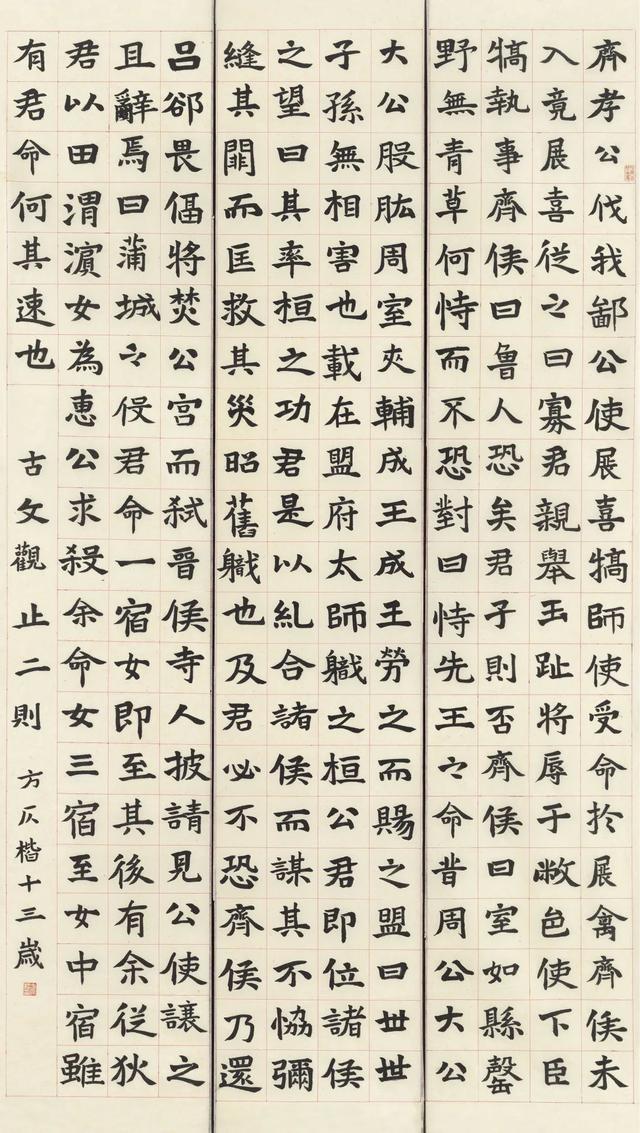 齊孝公伐我鄙公使展喜犒師使受命於展禽齊侯未
入竟展喜從之曰寡君親舉玉趾將辱于敝邑使下臣
犒執事齊侯曰魯人恐矣君子則否齊侯曰室如縣罄
野無青草何恃而不恐對曰恃先王之命昔周公大公
大公股肱周室夾輔成王成王勞之而賜之盟曰世世
子孫無相害也載在盟府太師職之桓公君即位諸侯
之望曰其率桓之功君是以糺合諸侯而謀其不恊彌
縫其闕而匡救其災昭舊職也及君必不恐齊侯乃還
呂郤畏偪將焚公宮而弒晉侯寺人披請見公使讓之
且辭焉曰蒲城之役君命一宿女即至其後有余從狄
君以田渭濵女為惠公求殺余命女三宿至女中宿雖
有君命何其速也 古文觀止二則 方楷十三歲